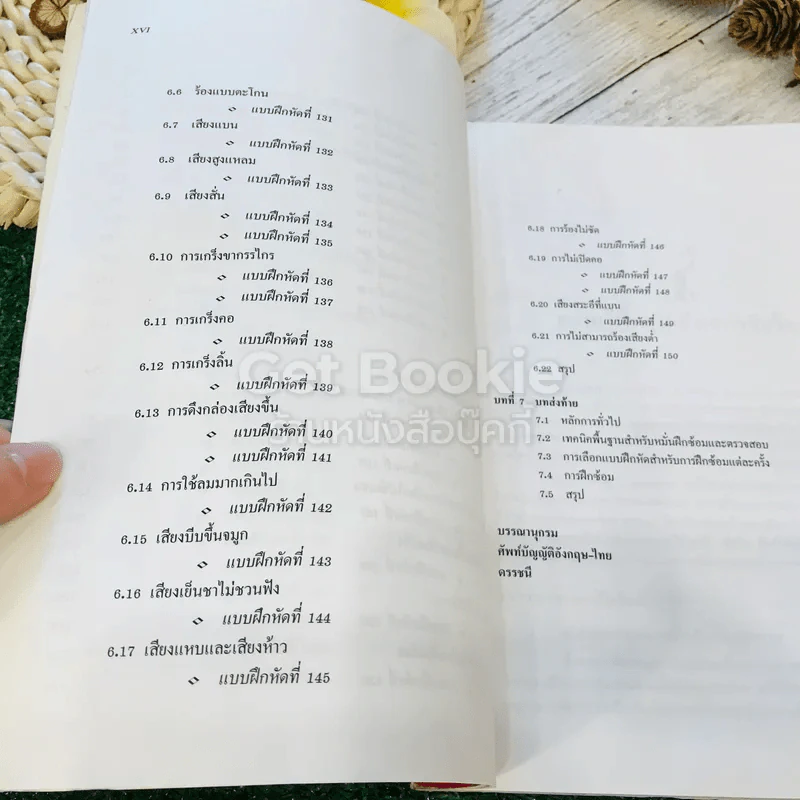 XVI
6.6 ร้องแบบตะโกน
แบบฝึกหัดที่ 131
6.7 เสียงแบน
แบบฝึกหัดที่ 132
6.8 เสียงสูงแหลม
แบบฝึกหัดที่ 133
6.9 เสียงสั่น
แบบฝึกหัดที่ 134
แบบฝึกหัดที่ 135
6.10 การเกร็งขากรรไกร
แบบฝึกหัดที่ 136
แบบฝึกหัดที่ 137
6.11 การเกร็งคอ
แบบฝึกหัดที่ 138
6.12 การเกร็งลิ้น
แบบฝึกหัดที่ 139
6.13 การดึงกล่องเสียงขึ้น
แบบฝึกหัดที่ 140
แบบฝึกหัดที่ 141
6.14 การใช้ลมมากเกินไป
แบบฝึกหัดที่ 142
6.15 เสียงบีบขึ้นจมูก
แบบฝึกหัดที่ 143
6.16 เสียงเย็นชาไม่ชวนฟัง
แบบฝึกหัดที่ 144
6.17 เสียงแหบและเสียงห้าว
แบบฝึกหัดที่ 145
6.18 การร้องไม่ชัด
แบบฝึกหัดที่ 146
6.19 การไม่เปิดคอ
แบบฝึกหัดที่ 147
แบบฝึกหัดที่ 148
6.20 เสียงสระอีที่แบน
แบบฝึกหัดที่ 149
6.21 การไม่สามารถร้องเสียงต่ำ
แบบฝึกหัดที่ 150
6.22 สรุป
บทที่ 7 บทส่งท้าย
7.1 หลักการทั่วไป
7.2 เทคนิคพื้นฐานสำหรับหมั่นฝึกซ้อมและตรวจสอบ
7.3 การเลือกแบบฝึกหัดสำหรับการฝึกซ้อมแต่ละครั้ง
7.4 การฝึกซ้อม
7.5 สรุป
บรรณานุกรม
ศัพท์บัญญัติอังกฤษ-ไทย
ดรรชนี
Get Bookie
ร้านหนังสือบุ๊คกี้